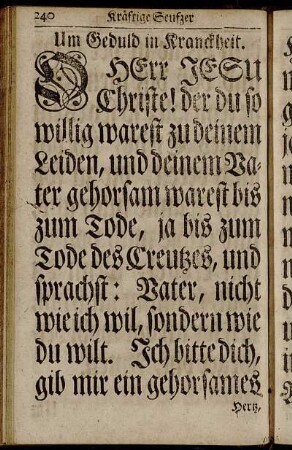 240 Kräftige Seufzer
Um Geduld in Kranckheit.
O HErr JESU
Christe! der du so
willig warest zu deinem
Leiden, und deinem Va-
ter gehorsam warest bis
zum Tode, ja bis zum
Tode des Creutzes, und
sprachst: Vater, nicht
wie ich wil, sondern wie
du wilt. Ich bitte dich,
gib mir ein gehorsames
Hertz,